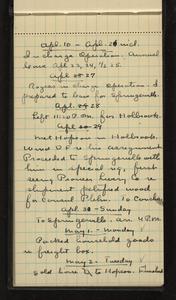 Apl. 10 - Apl. 26 incl.
In charge Operation. Annual
leave Apl 23, 24, & 25.
Apl 27
Rogers in charge Operation. I
prepared to leave for Springerville.
Apl. 28
Left 11:10 P.M. for Holbrook.
Apl 29
Met Hopson in Holbrook.
Wired D.F. his assignment.
Proceeded to Springerville with
him in special rig, first
seeing Power hiring a
shipment petrified wood
for Consul. To Concho
Apl. 30 - Sunday
To Springerville. arr. 4 P.M.
May 1. - Monday
Packed household goods
in freight box.
May 2. - Tuesday
Sold horse to Hopson.